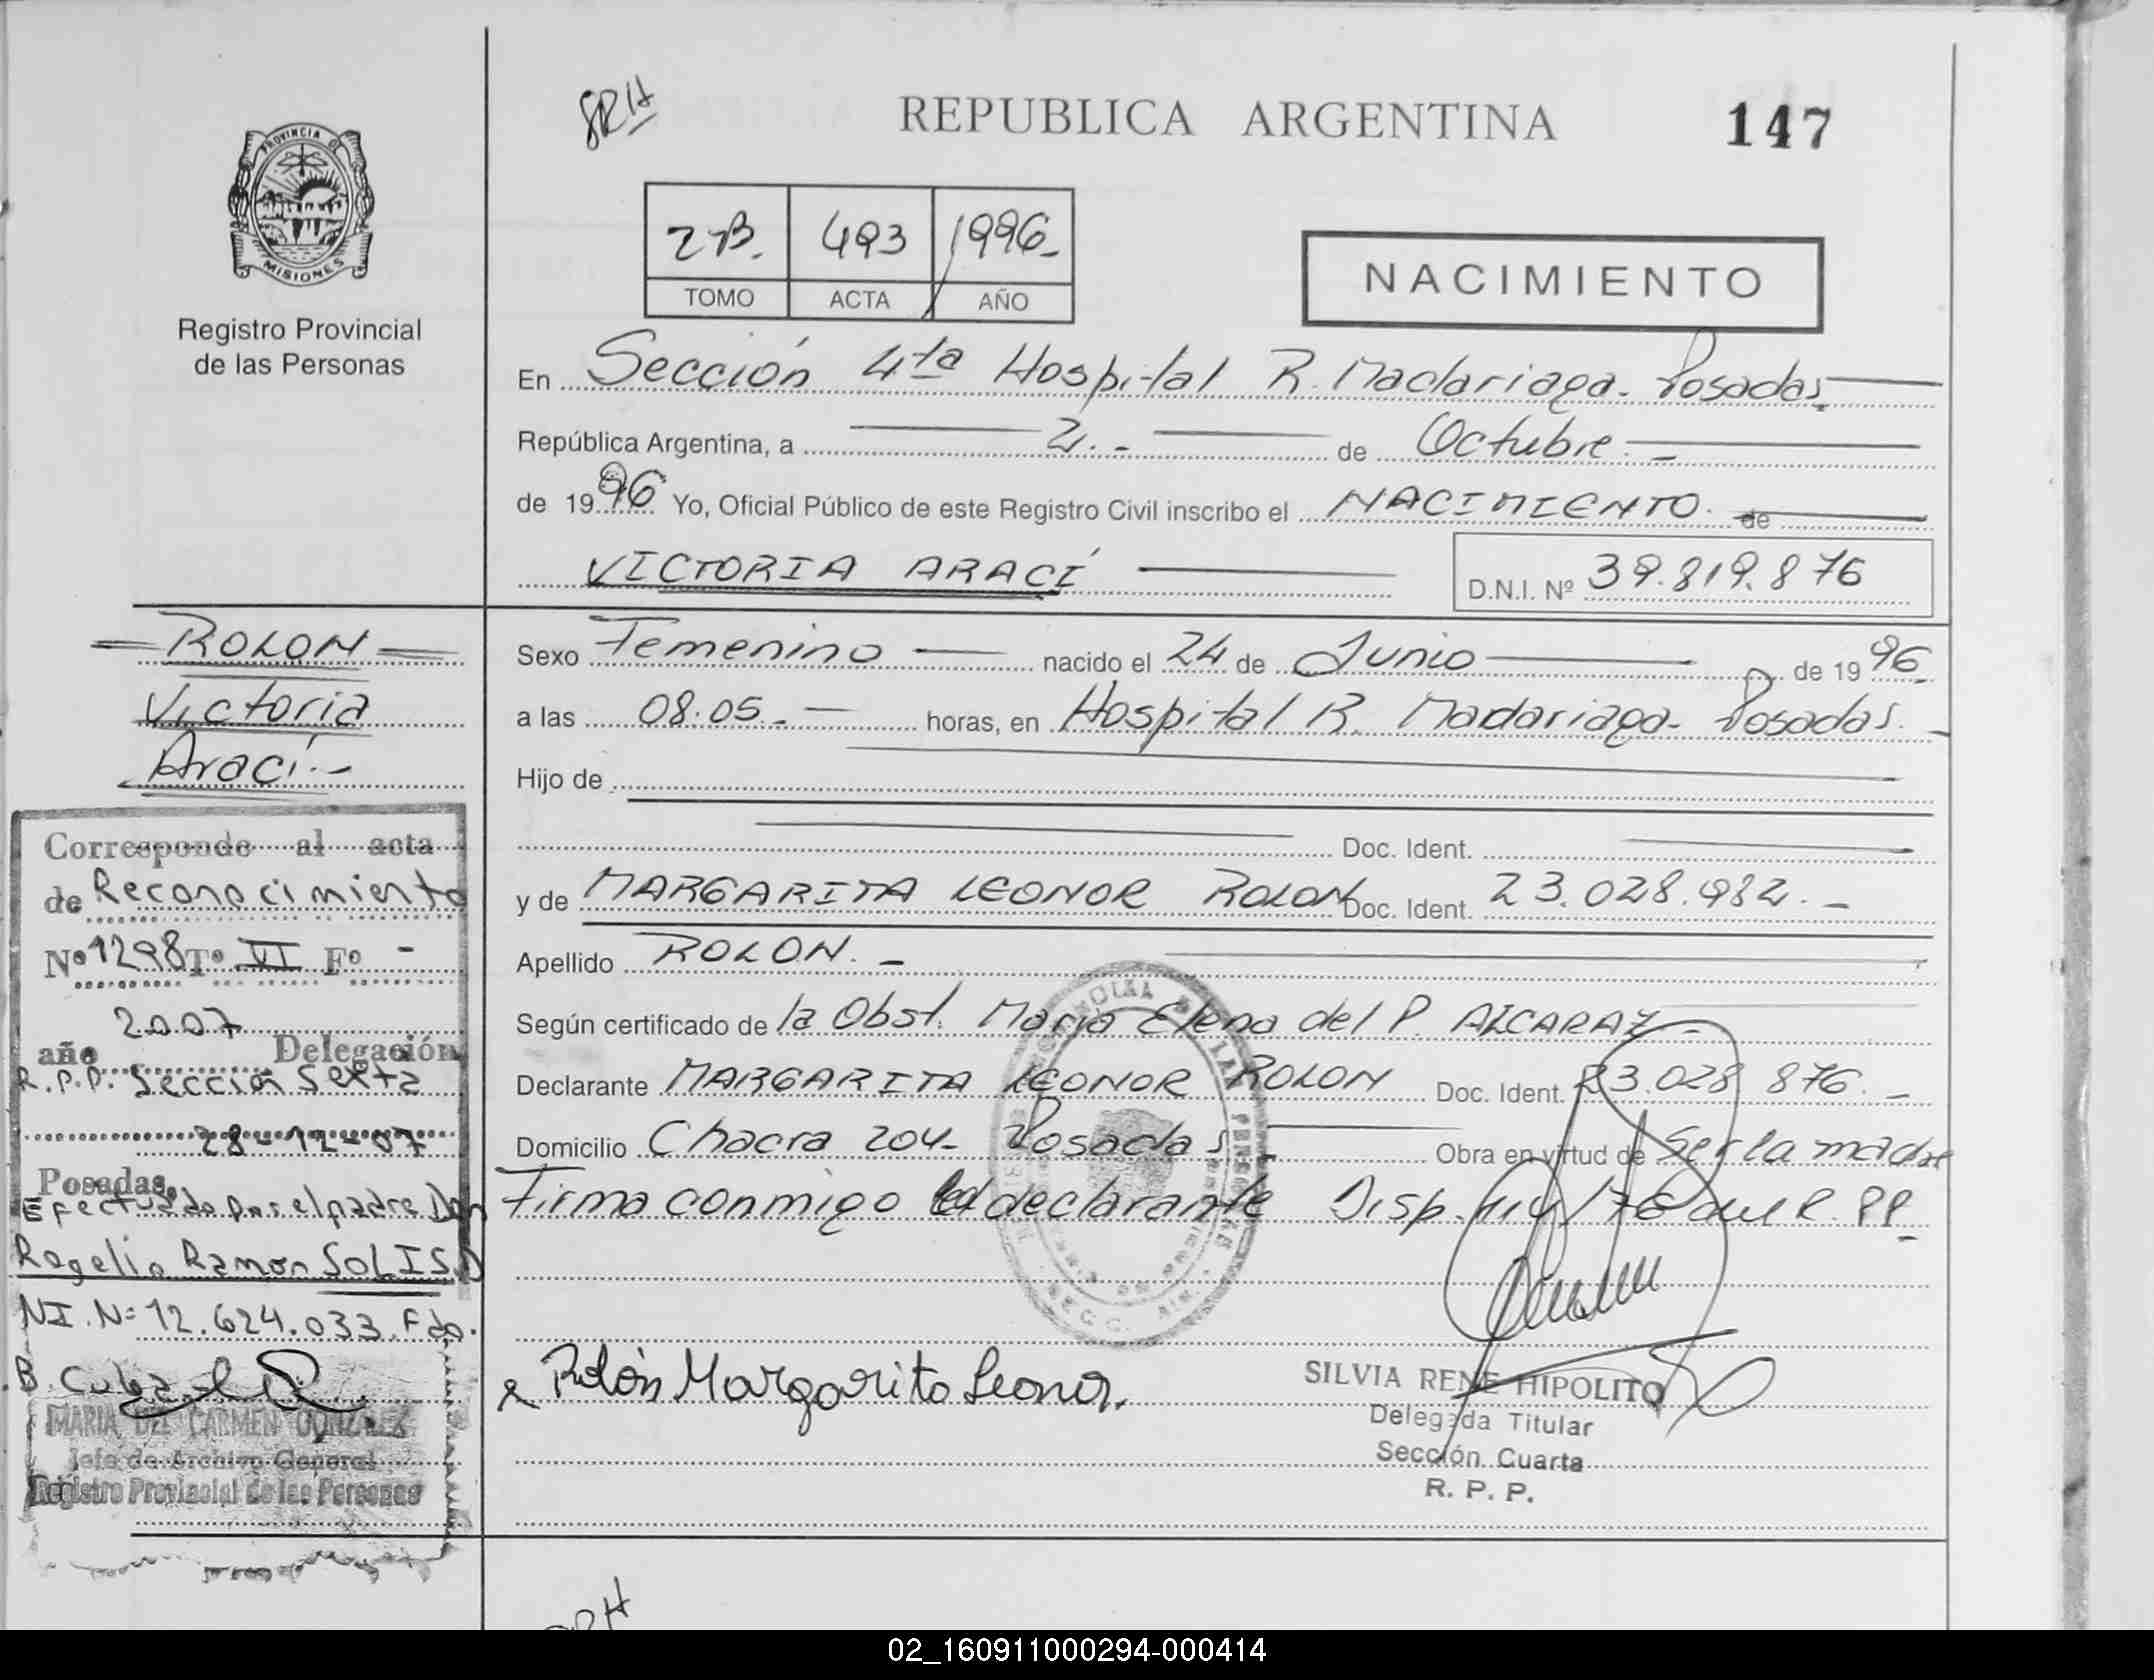 SRH
REPUBLICA ARGENTINA
147
PROVINCIA DE
MISIONES
Registro Provincial
de las Personas
2B. 493 1996-
TOMO ACTA AÑO
NACIMIENTO
En Sección 4ta Hospital R. Madariaga. Posadas
República Argentina, a 2.- de Octubre.-
de 1996 Yo, Oficial Público de este Registro Civil inscribo el NACIMIENTO. de
VICTORIA ARACÍ
D.N.I. Nº 39.819.876
ROLON
Victoria
Arací.-
Sexo Femenino nacido el 24 de Junio de 1996
a las 08.05.- horas, en Hospital R. Madariaga- Posadas.
Hijo de
Doc. Ident.
y de MARGARITA LEONOR ROLON Doc. Ident. 23.028.982.-
Apellido ROLON.-
Según certificado de la Obst. Maria Elena del P. ALCARAZ-
Declarante MARGARITA LEONOR ROLON Doc. Ident. 23.028 876.-
Domicilio Chacra 204- Posadas Obra en virtud de Ser la madre
Firma conmigo declarante Disp. R. PP
Corresponde al acta
de Reconocimiento
Nº 1298 Tº VI Fº -
2007
año Delegación
R.P.P. Sección Sexta
28-12-07
Posadas,
Efectuado por el padre Don
Rogelio Ramon SOLIS. D
NI. Nº 12.624.033. Fdo.
MARIA DEL CARMEN GONZALEZ
Jefe de Archivo General
Registro Provincial de las Personas
Rolón Margarita Leonor.
SILVIA RENE HIPOLITO
Delegada Titular
Sección Cuarta
R. P. P.
02_160911000294-000414